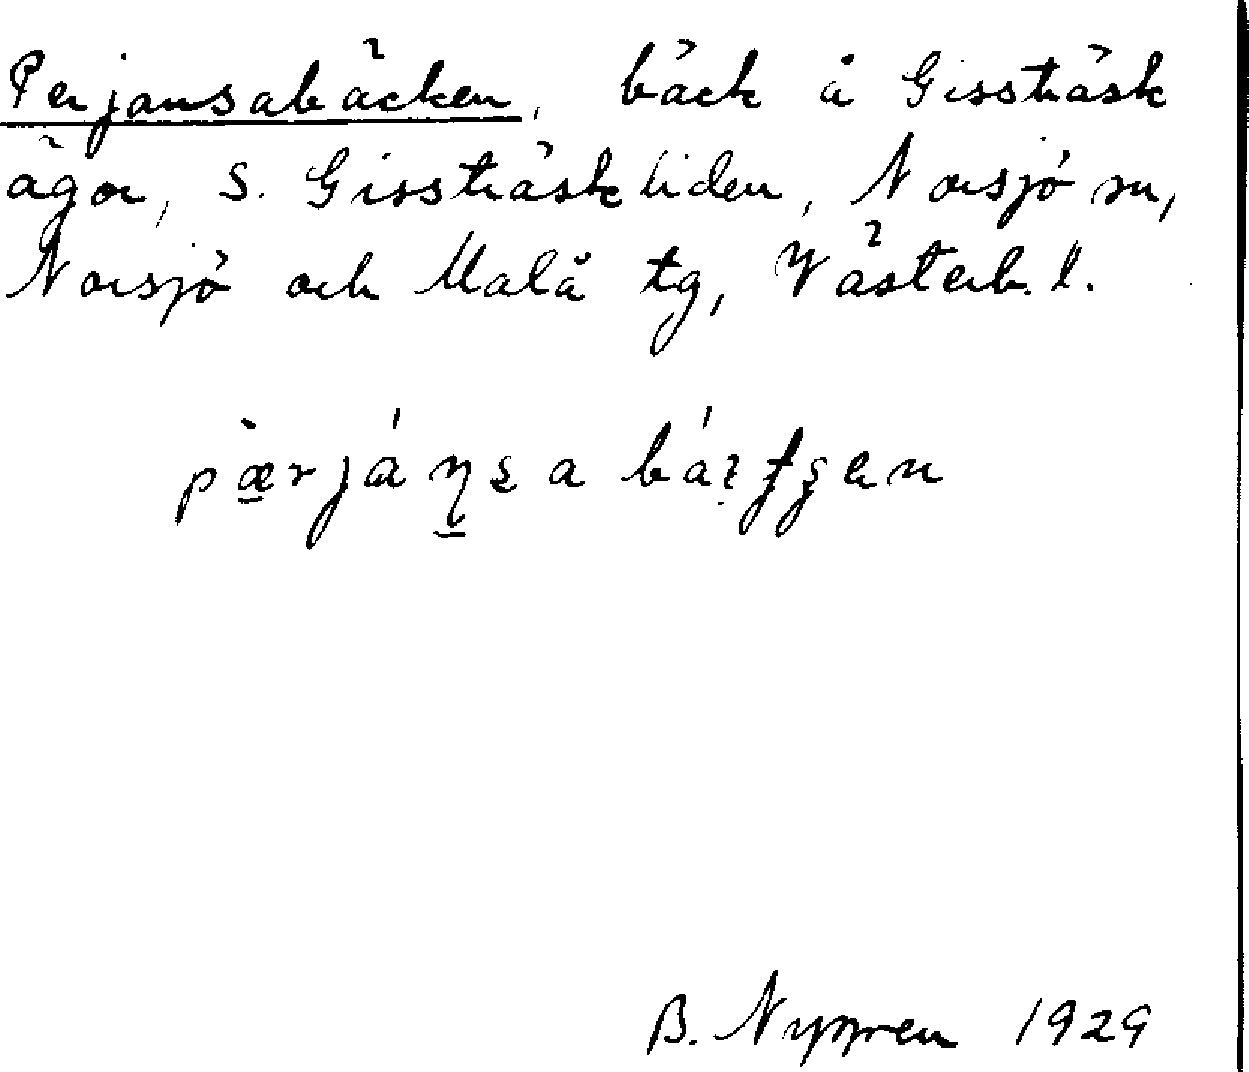 Perjansabäcken, bäck å Gissträsk
ägor, S. Gissträskliden, Norsjö sn,
Norsjö och Malå tg, Västerb. l.
B. Nygren 1929